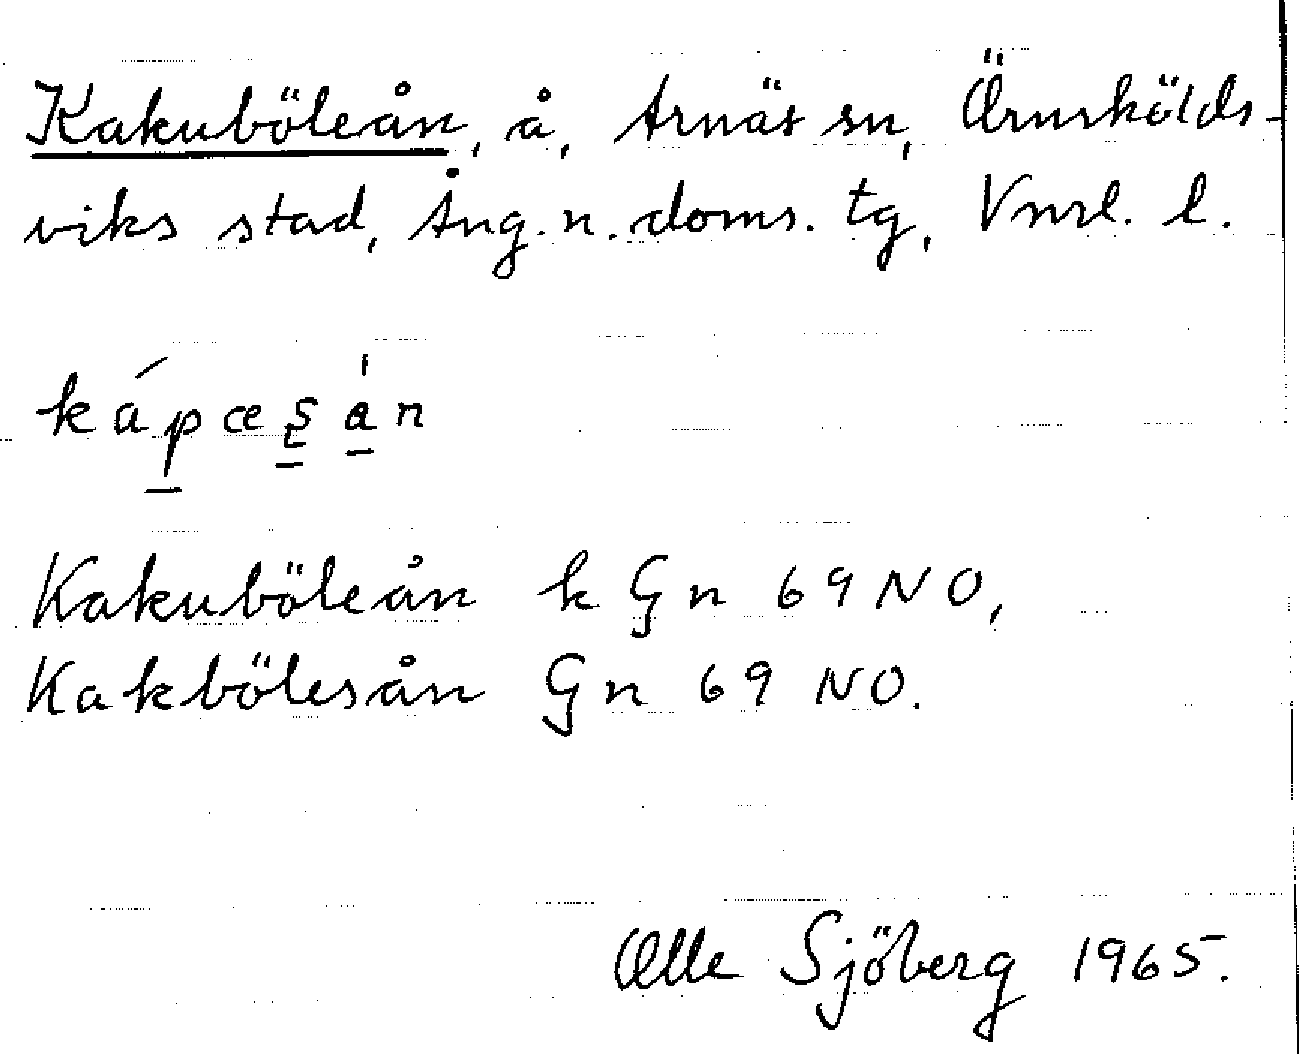 Kakuböleån, å, Arnäs sn, Örnskölds-
viks stad, Ång. n. doms. tg, Vnrl. l.
Kakuböleån k Gn 69 NO,
Kakbölesån Gn 69 NO.
Olle Sjöberg 1965.